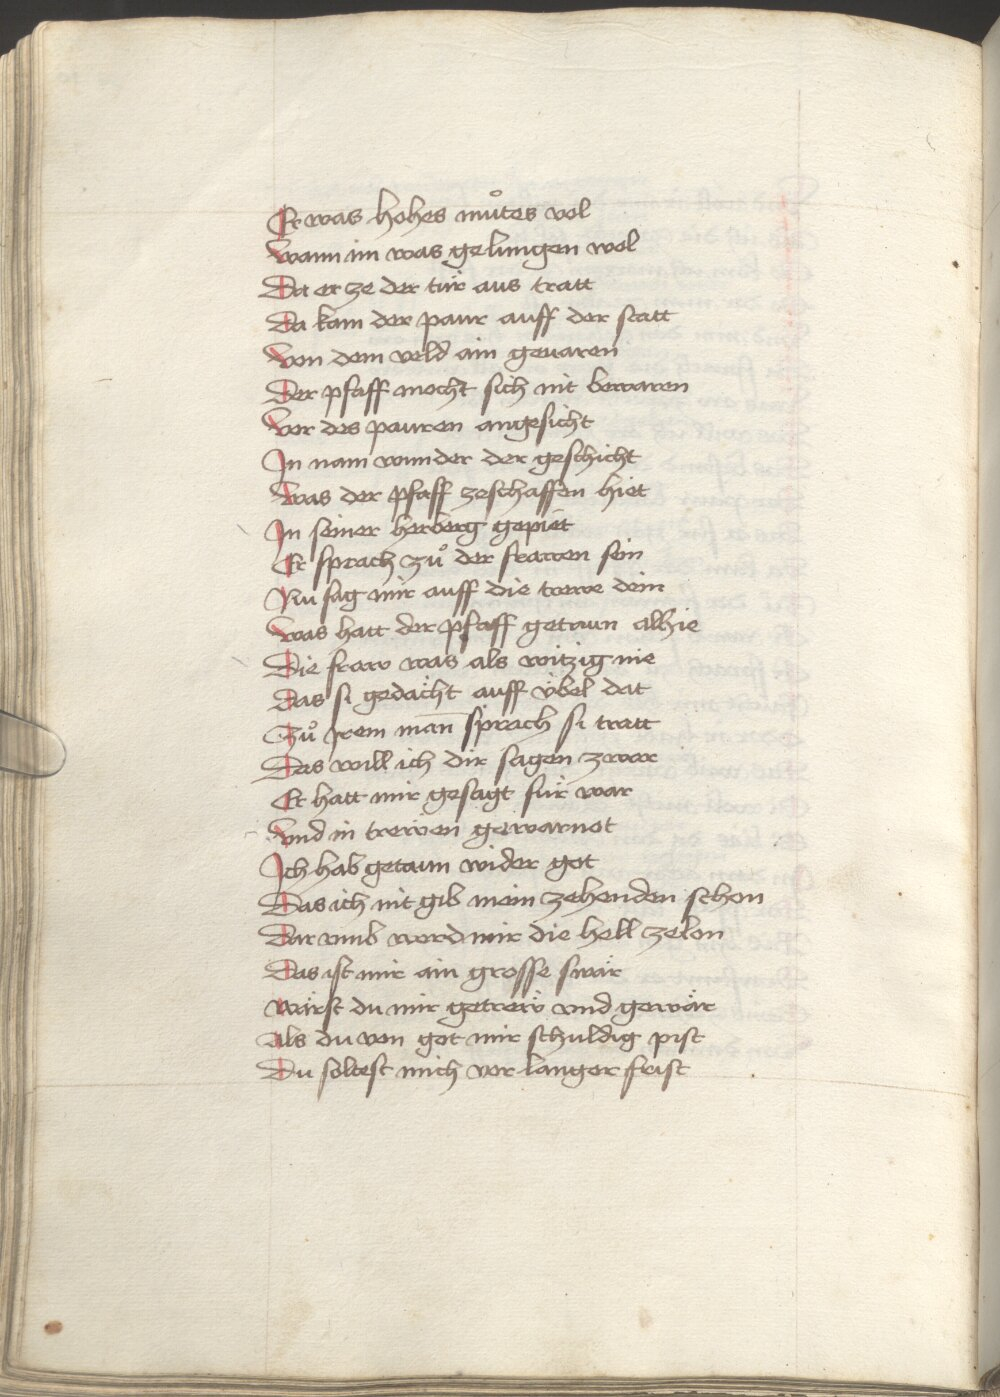 Er was hohes můtes vol
Wann im was gelungen wol
Da er ze der tür aus tratt
Da kam der paur auff der statt
Von dem veld ain geuaren
Der pfaff mocht sich nit bewaren
Vor des pauren angesicht
In nam wunder der geschicht
Was der pfaff zeschaffen hiet
In seiner herberg gepiet
Er sprach zů der frawen sein
Nu sag mir auff die trewe dein
Was hatt der pfaff getaun alhie
Die fraw was als witzig nie
Das si gedächt auff übel dat
Zů jrem man̄ sprach si tratt
Das will ich dir sagen zwar
Er hatt mir gesagt für war
Vnd in trewen gewarnot
Ich hab getaun wider got
Das ich nit gib mein zehenden schon
Dar vmb werd mir die hell zelon
Das ist mir ain grosse swär
Wärst du mir getrew vnd gewär
Als du von got mir schuldig pist
Du soltest mich vor langer frist